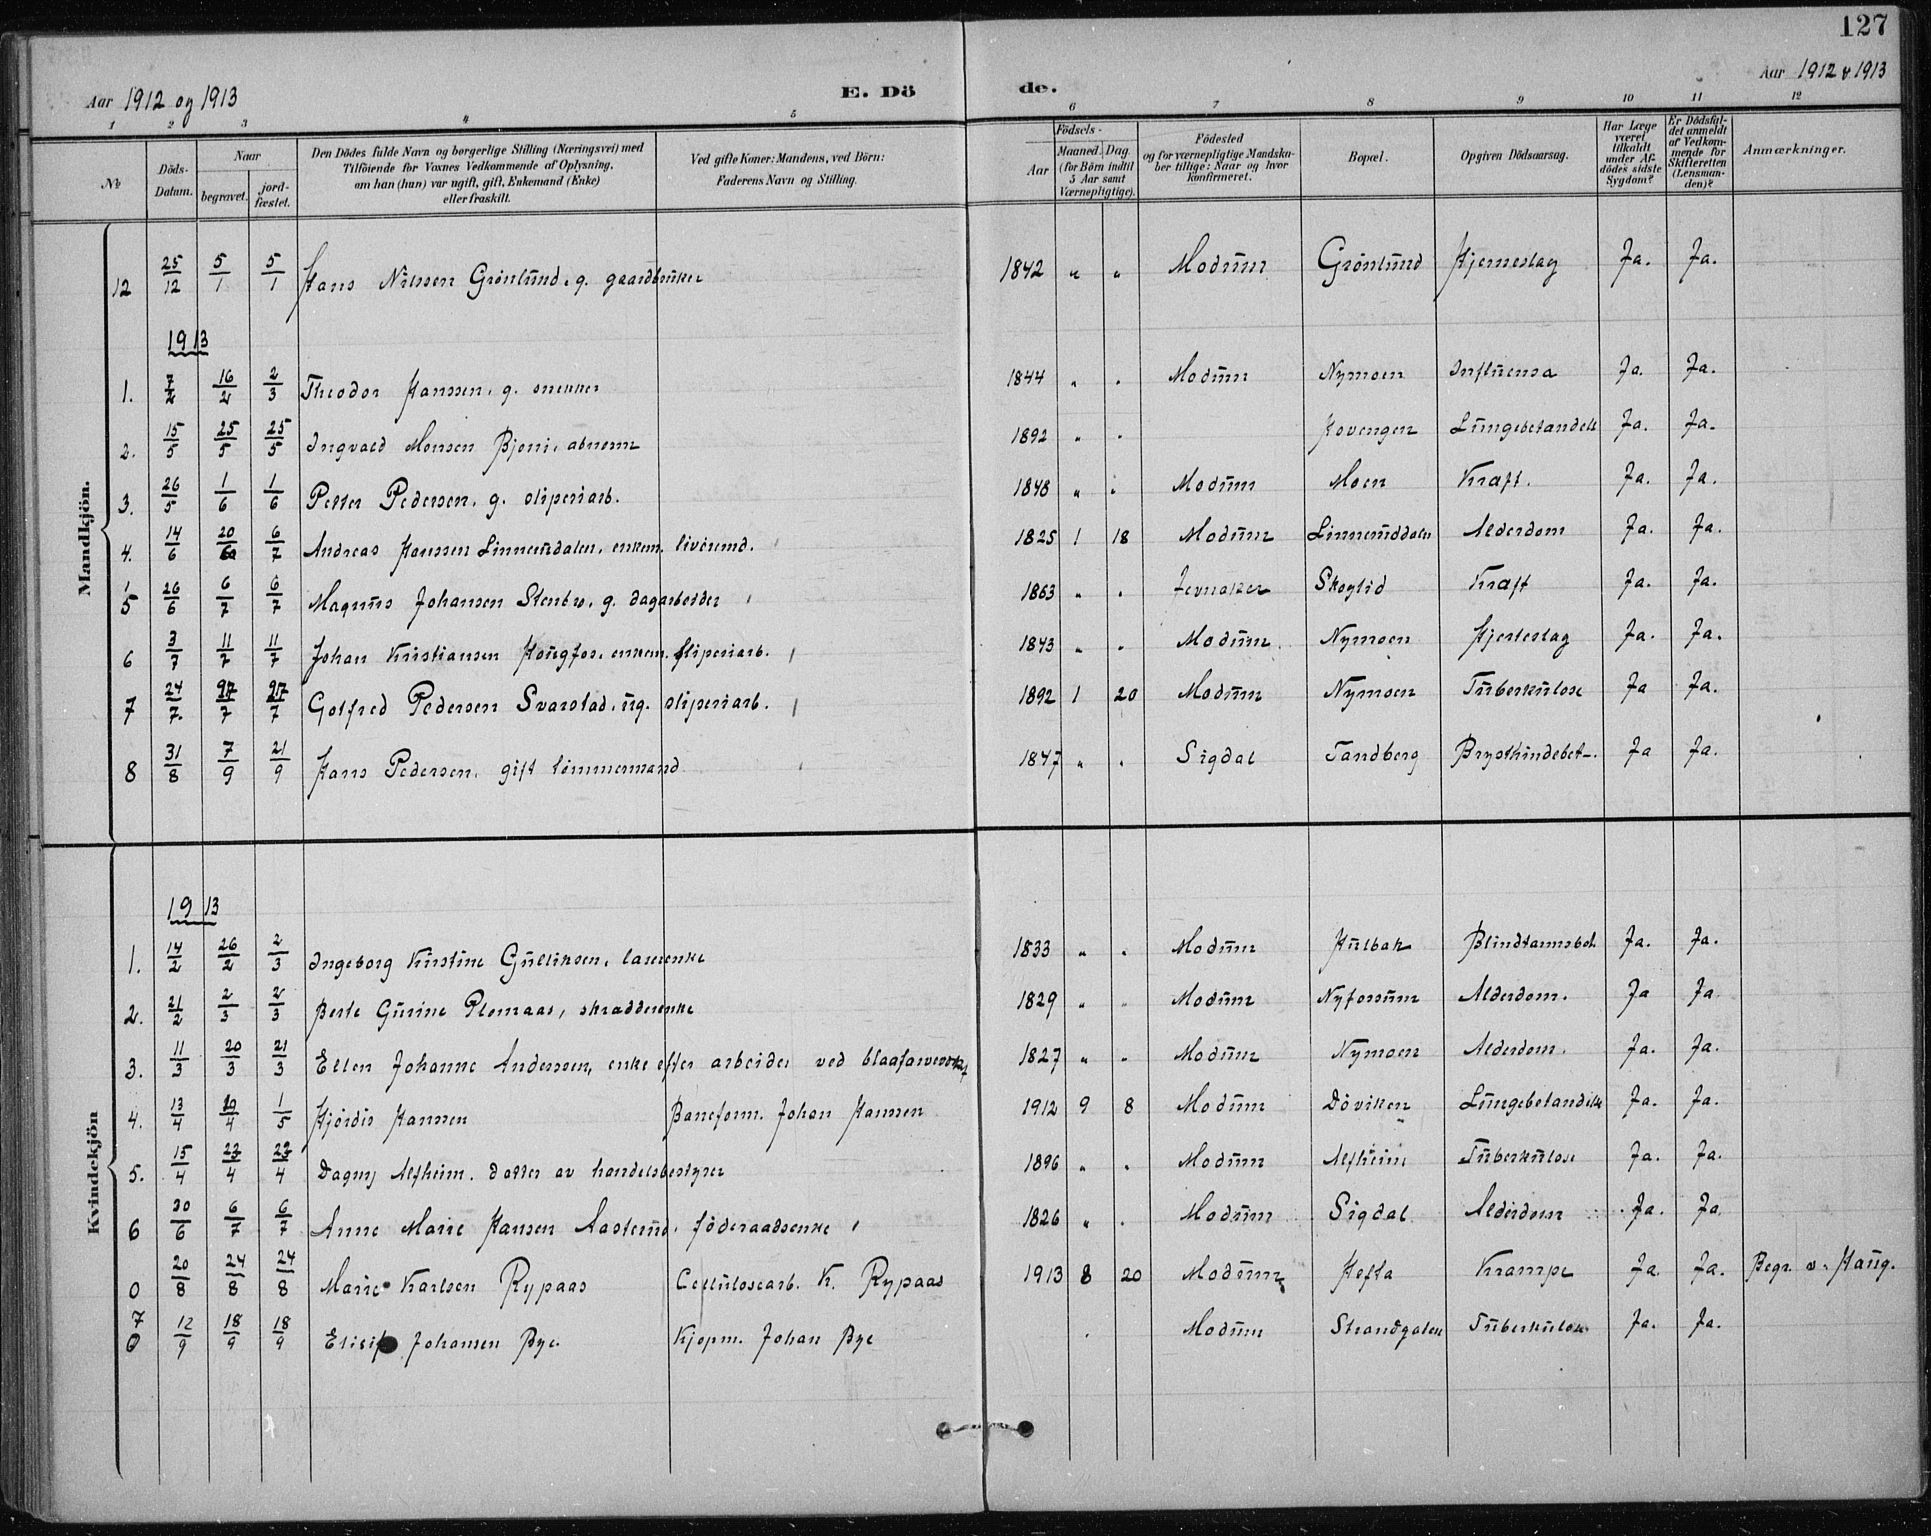 127
Aar 1912 og 1913 E. Dö de. Aar 1912 & 1913
1 2 3 4 5 6 7 8 9 10 11 12
№ Döds-Datum. Naar begravet. jordfæstet. Den Dödes fulde Navn og borgerlige Stilling (Næringsvei) med Tilföiende for Voxnes Vedkommende af Oplysning, om han (hun) var ugift, gift, Enkemand (Enke) eller fraskilt. Ved gifte Koner: Mandens, ved Börn: Faderens Navn og Stilling. Födsels- Aar Maaned. Dag. (for Börn indtil 5 Aar samt Værnepligtige). Födested og for værnepligtige Mandskaber tillige: Naar og hvor konfirmeret. Bopæl. Opgiven Dödsaarsag. Har Læge været tilkaldt under Afdödes sidste Sygdom? Er Dödsfaldet anmeldt af Vedkommende for Skifteretten (Lensmanden)? Anmærkninger.
Mandkjön.
12 25/12 5/1 5/1 Hans Nilssen Grönlund, g. gaardbruker 1842 " " Modum Grönlund Hjerneslag Ja. Ja.
1913
1. 7/2 16/2 2/3 Theodor Hanssen, g. snekker 1844 " " Modum Nymoen Influensa Ja. Ja.
2. 15/5 25/5 25/5 Ingvald Monsen Bjerni, abnorm 1892 " " Hovengen Lungebetændels Ja. Ja.
3. 26/5 1/6 1/6 Petter Pedersen, g. sliperiarb. 1848 " " Modum Moen Kræft. Ja. Ja.
4. 14/6 20/6 6/7 Andreas Hanssen Linnerudalen, enkem. livörend. 1825 1 18 Modum Linneruddalen Alderdom Ja. Ja.
5 26/6 6/7 6/7 Magnus Johansen Stenbro, g. dagarbeider 1863 " " Jevnaker Skoglid Kræft Ja. Ja.
6 3/7 11/7 11/7 Johan Kristiansen Hougfos, enkem. sliperiarb. 1843 " " Modum Nymoen Hjerteslag Ja. Ja.
7 24/7. 27/7 27/7 Gotfred Pedersen Svarstad, ug. sliperiarb. 1892 1 20 Modum Nymoen Tuberkulose Ja Ja.
8 31/8 7/9 21/9 Hans Pedersen, gift tömmermand 1847 " " Sigdal Tandberg Brysthindebet-. Ja Ja.
Kvindekjön
1913
1. 14/2 26/2 2/3 Ingeborg Kirstine Gulliksen, 1833 " " Modum Hulbak Blindtarmsbet. Ja. Ja.
2. 21/2 2/3 2/3 Berte Gurine Plomaas, skrædderenke 1829 " " Modum Nyfossum Alderdom. Ja Ja
3. 11/3 20/3 21/3 Ellen Johanne Anderssen, enke efter arbeider ved blaafarveverket 1827 " " Modum Nymoen Alderdom. Ja. Ja.
4. 13/4 20/4 1/5 Hjördis Hanssen Baneform. Johan Hanssen 1912 9 8 Modum Döviken Lungebetændelse Ja. Ja.
5. 15/4 23/4 23/4 Dagny Alfheim. datter av handelsbestyrer 1896 " " Modum Alfheim Tuberkulose Ja. Ja.
6 30/6 6/7 6/7 Anne Marie Hansen Aasterud, föderaadsenke 1826 " " Modum Sigdal Alderdom Ja. Ja
0 20/8 24/8 24/8 Marie Karlsen Rypaas Cellulosearb. K. Rypaas 1913 8 20 Modum Hefta Krampe Ja. Ja. Begr. v. Haug.
7 0 12/9 18/9 18/9 Elisif Johansen Bye. Kjøpm. Johan Bye Modum Strandgaten Tuberkulose Ja. Ja.